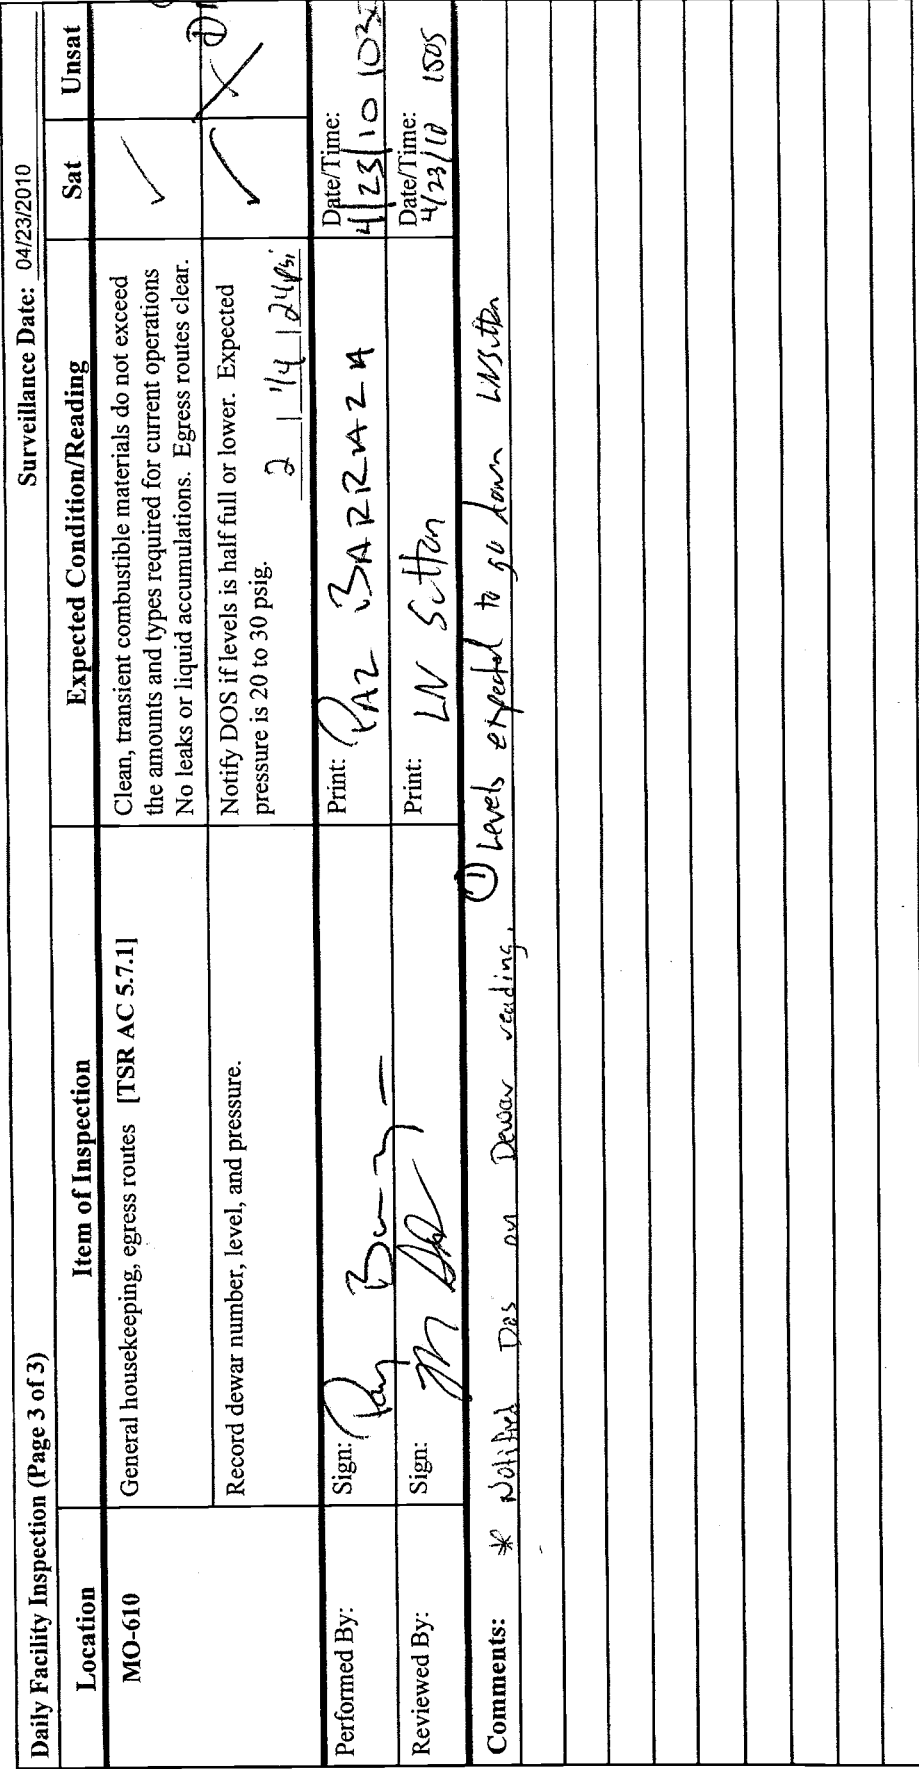 Daily Facility Inspection (Page 3 of 3) Surveillance Date: 04/23/2010
Location Item of Inspection Expected Condition/Reading Sat Unsat
MO-610 General housekeeping, egress routes [TSR AC 5.7.1] Clean, transient combustible materials do not exceed
the amounts and types required for current operations
No leaks or liquid accumulations. Egress routes clear.
✓
Record dewar number, level, and pressure. Notify DOS if levels is half full or lower. Expected
pressure is 20 to 30 psig. 2 | 1/4 | 24psi
✓ X
Performed By: Sign: Print: PAZ BARRAZA Date/Time:
4/23/10
Reviewed By: Sign: Print: LN Sutton Date/Time:
4/23/10 1505
Comments: * Notified DOS on Dewar reading. ① Levels expected to go down LNSutton